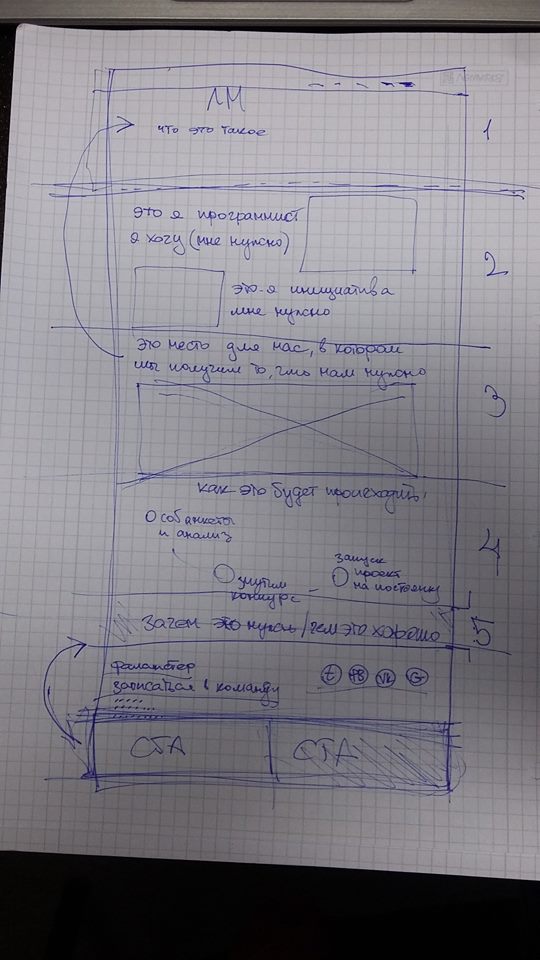 ЛМ
что это такое
1
это я программист
я хочу (мне нужно)
2
это я инициатива
мне нужно
это место для нас, в котором
мы получим то, что нам нужно
3
как это будет происходить
соб анкеты
и анализ
4
запуск
проект
на постоянку
конкурс
Зачем это нужно / чем это хорошо
5
записаться в команду
t
FB
VK
G
CTA
CTA